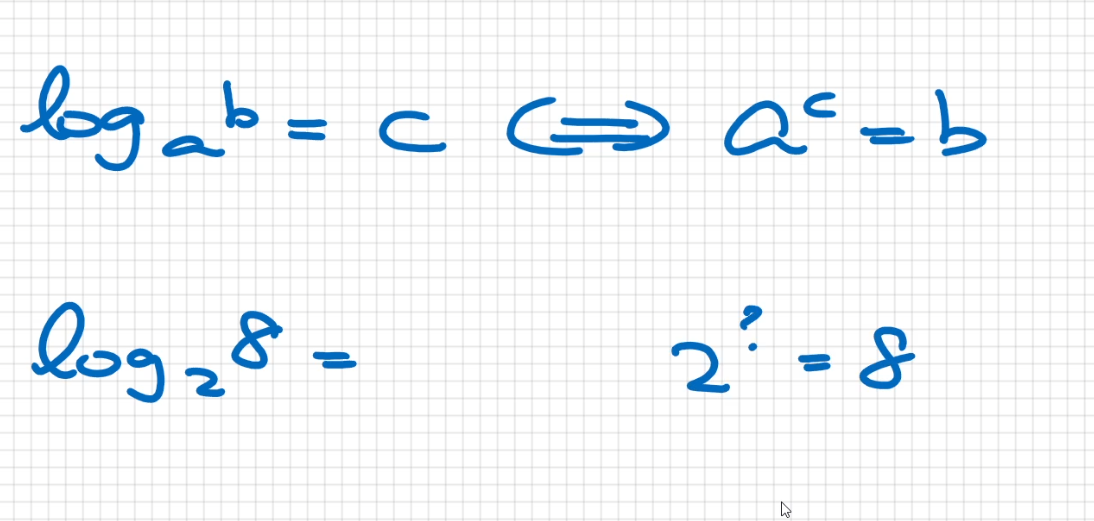 logₐ b = c ⟺ aᶜ = b
log₂ 8 = 2^? = 8